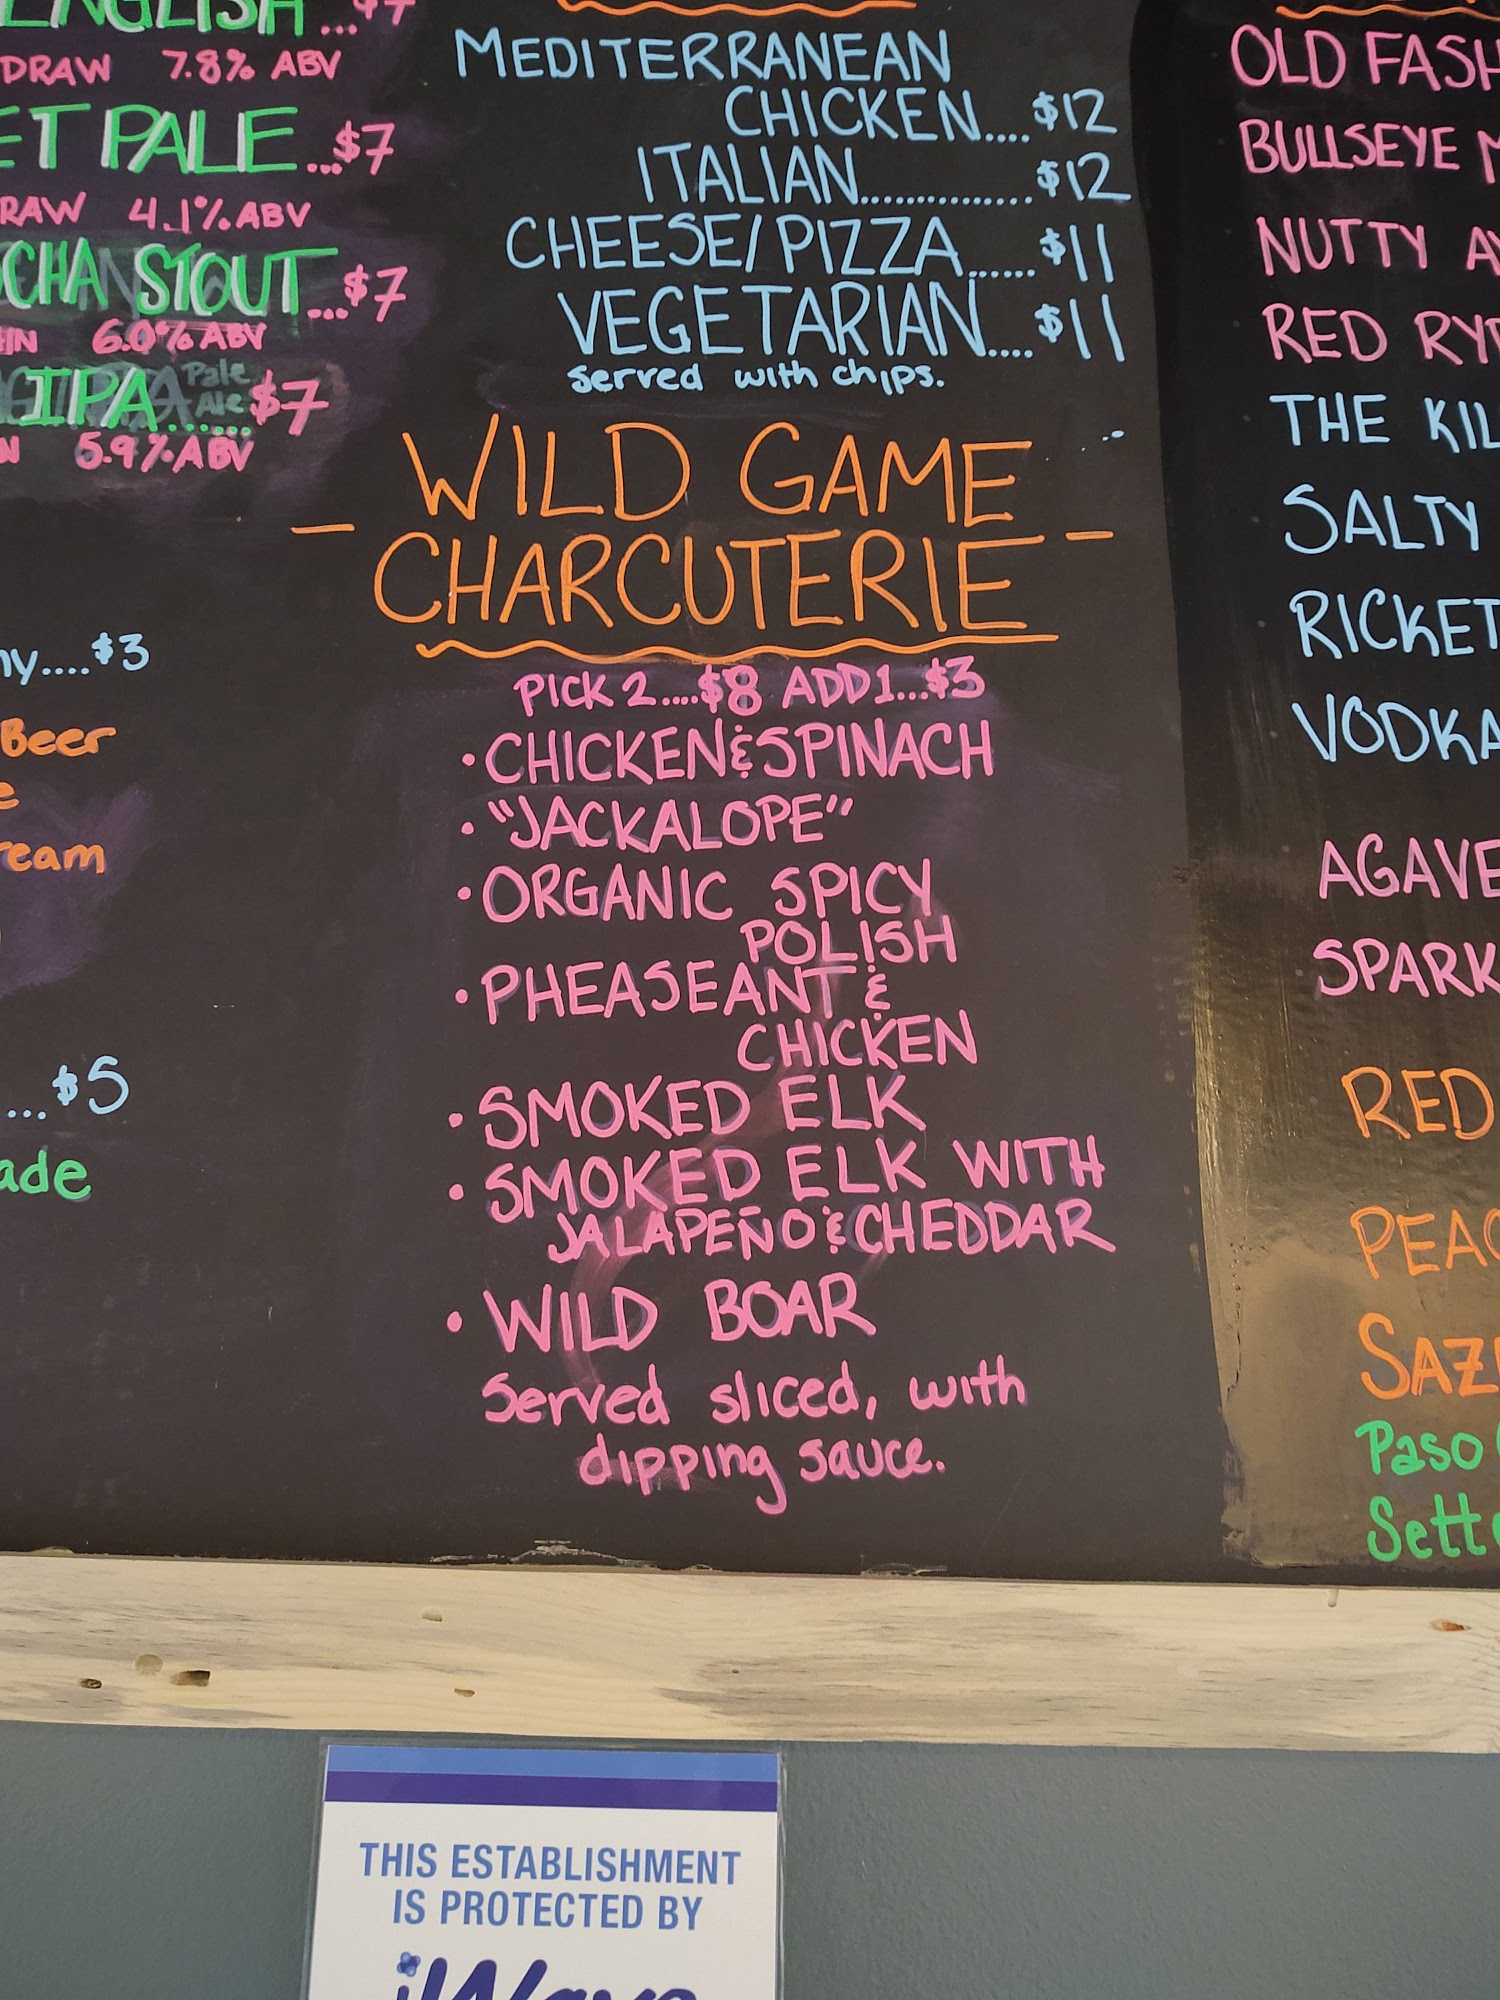 ENGLISH...$7
DRAW 7.8% ABV
PALE...$7
4.1% ABV
STOUT...$7
6.0% ABV
IPA......$7
Pale
Ale
5.9% ABV
....$3
Beer
...$5
MEDITERRANEAN
CHICKEN....$12
ITALIAN..............$12
CHEESE/PIZZA......$11
VEGETARIAN....$11
served with chips.
- WILD GAME -
CHARCUTERIE
PICK 2....$8 ADD 1...$3
• CHICKEN & SPINACH
• "JACKALOPE"
• ORGANIC SPICY
POLISH
• PHEASEANT &
CHICKEN
• SMOKED ELK
• SMOKED ELK WITH
JALAPEÑO & CHEDDAR
• WILD BOAR
Served sliced, with
dipping sauce.
OLD FASH
BULLSEYE M
NUTTY AV
RED RYD
THE KIL
SALTY
RICKET
VODKA
AGAVE
SPARK
RED
PEAC
SAZE
Paso
Sett
THIS ESTABLISHMENT
IS PROTECTED BY
iWave